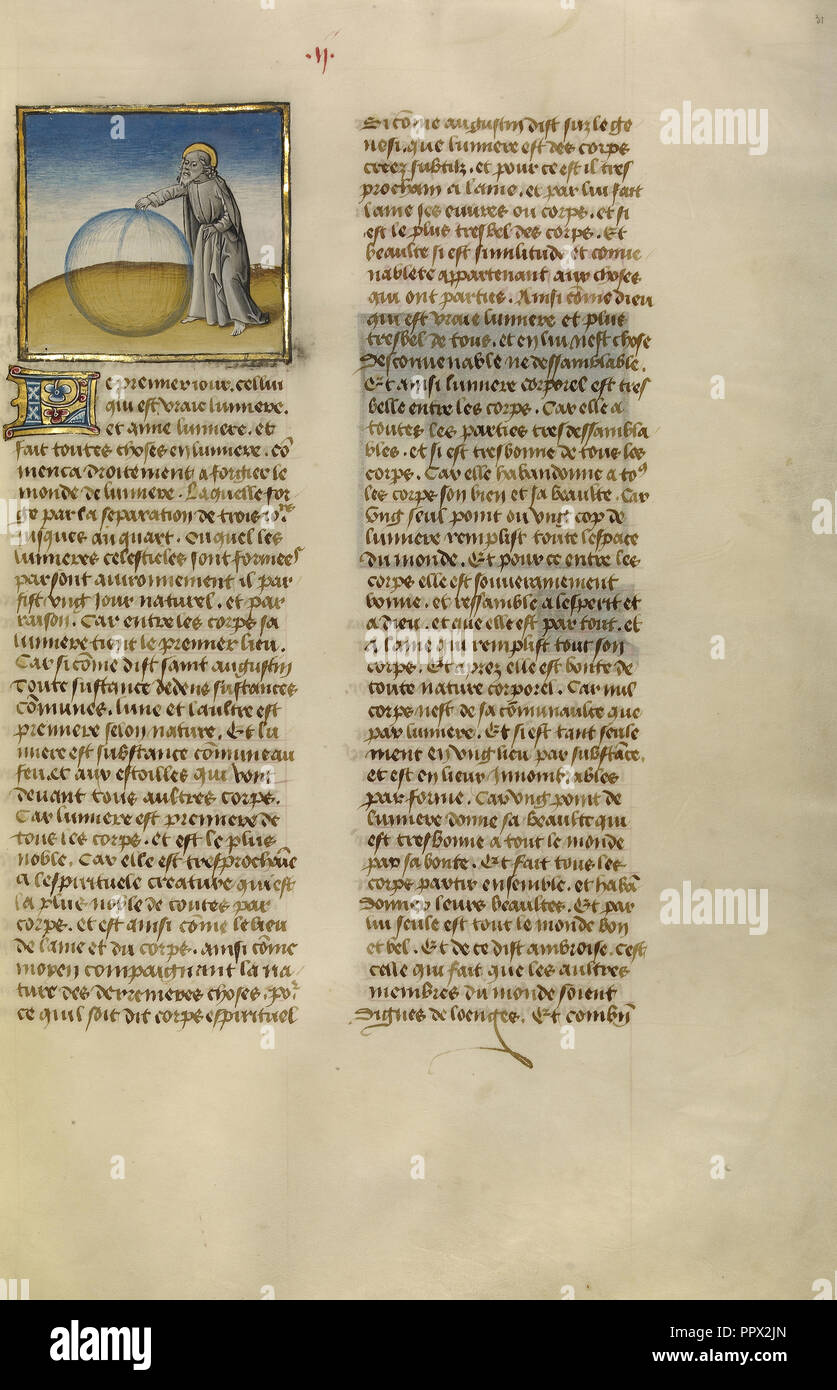 .ij.
Le premier iour. cellui
qui est vraie lumiere.
et aime lumiere. et
fait toutes choses en lumiere. cõ
menca droitement a forgier le
monde de lumiere. laquelle for
ge par la separation de trois io.rs
iusques au quart. Ouquel les
lumieres celestieles sont formees
par sont auironnement il par
fist vng iour naturel. et par
raison. Car entre les corps sa
lumiere tient le premier lieu.
Car si cõme dist saint augustin
Toute sustance dedens sustances
cõmunes. lune et laultre est
premiere selon nature. Et lu
miere est substance cõmune au
feu. et aux estoilles qui vont
deuant tous aultres corps.
Car lumiere est premiere de
tous les corps. et est le plus
noble. Car elle est tresprochaĩe
a lespirituele creature qui est
la plus noble de toutes par
corps. et est ainsi cõme le lieu
de lame et du corps. ainsi cõme
moyen compaignant la na
ture des derrenieres choses. por
ce quil soit dit corps espirituel
Si cõme augustin dist sur le ge
nesi. que lumiere est des corps
creez subtilz. et pour ce est il tres
prochain a lame. et par lui fait
lame ses euures ou corps. et si
est le plus tresbel des corps. Et
beaulte si est similitude et conue
nablete appartenant aux choses
qui ont parties. Ainsi cõme dieu
qui est vraie lumiere et plus
tresbel de tous. et en lui nest chose
desconuenable ne dessamblable.
Et ainsi lumiere corporel est tres
belle entre les corps. Car elle a
toutes les parties tresdessambla
bles. et si est tresbonne de tous les
corps. Car elle habandonne a to9
les corps son bien et sa beaulte. Car
vng seul point ou vng cop de
lumiere remplist toute lespace
du monde. Et pour ce entre les
corps elle est souuerainement
bonne. et ressamble a lesperit et
a dieu. et que elle est par tout. et
a lame qui remplist tout son
corps. Et aprez elle est bonte de
toute nature corporel. Car nul
corps nest de sa cõmunaulte que
par lumiere. Et si est tant seule
ment en vng lieu par substãce.
et est en lieux Innombrables
par forme. Car vng point de
lumiere donne sa beaulte qui
est tresbonne a tout le monde
par sa bonte. Et fait tous les
corps partir ensemble. et habã
donner leurs beaultes. Et par
lui seule est tout le monde bon
et bel. Et de ce dist ambroise. Cest
celle qui fait que les aultres
membres du monde soient
dignes de loenges. Et combiẽ
alamy
Image ID: PPX2JN
www.alamy.com